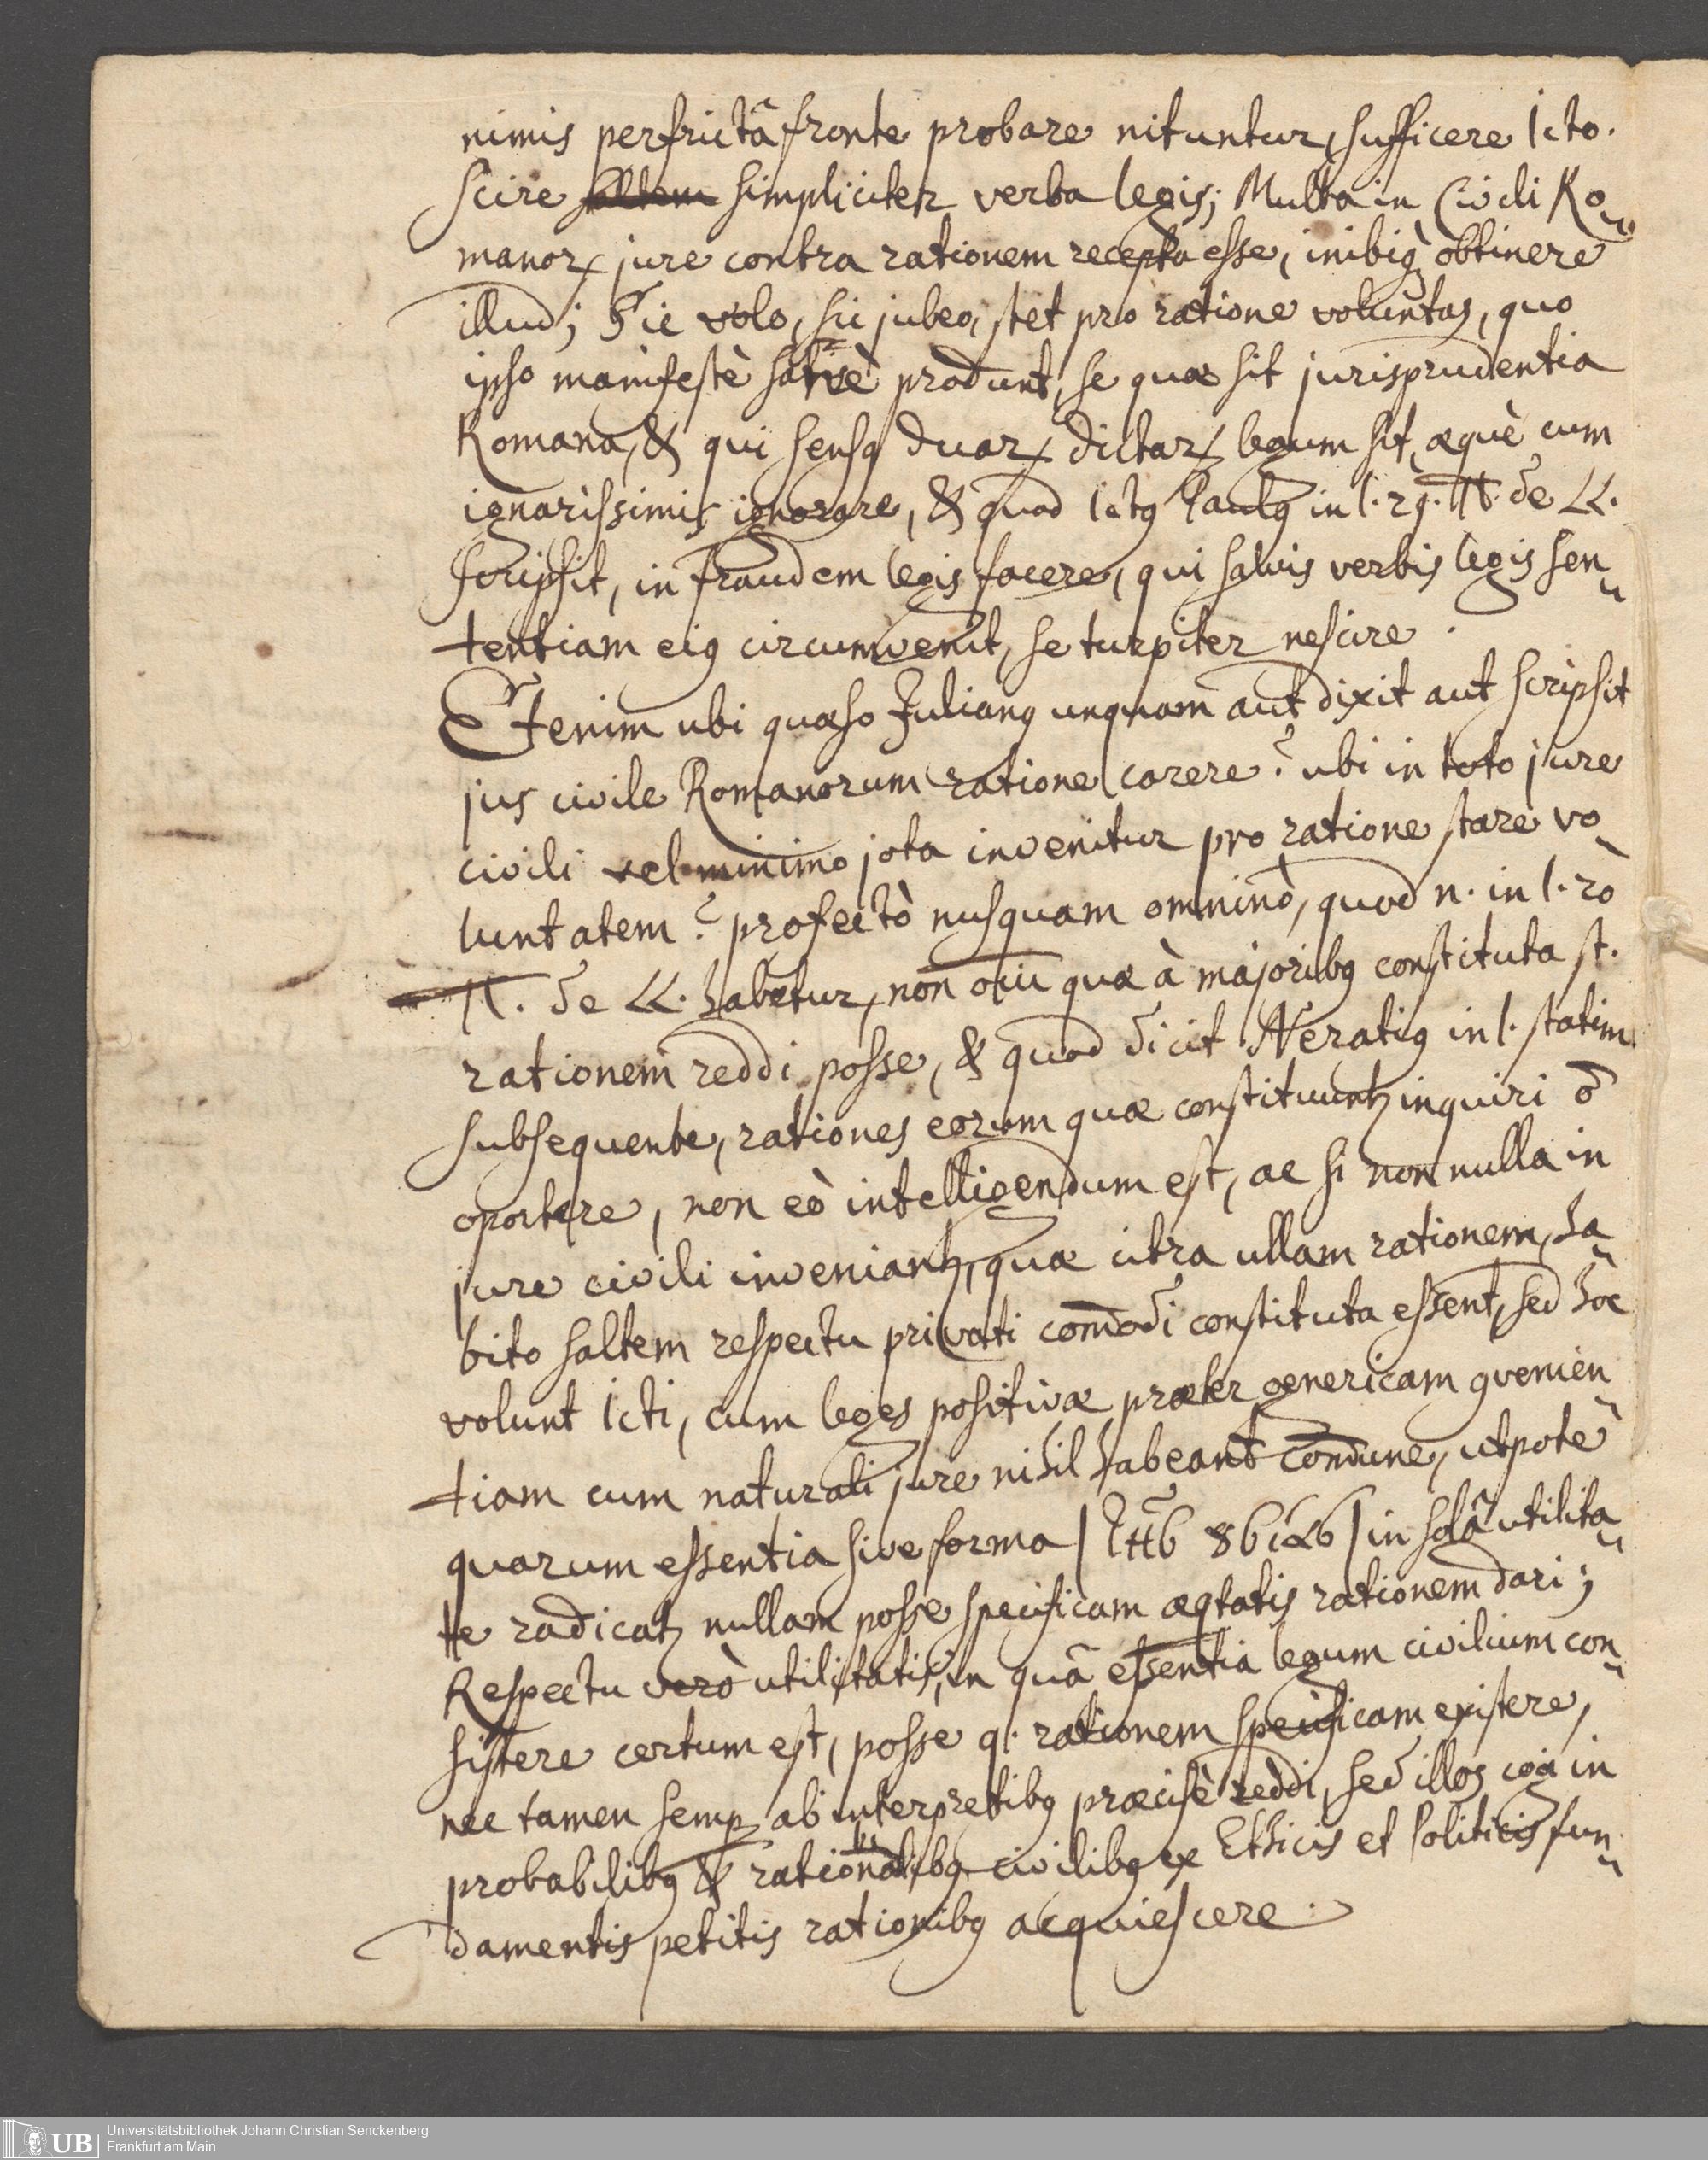 nimis perfrictâ fronte probare nituntur, sufficere Icto.
scire simpliciter verba legis; Multa in Civili Ro„
manorꝝ jure contra rationem recepta esse, inibiqꝫ obtinere
illud; Sic volo, sic jubeo, stet pro ratione voluntas, quo
ipso manifestè produnt, se quæ sit jurisprudentia
Romana, & qui sensꝰ duarꝝ dictarꝝ legum sit, æquè cum
ignarissimis ignorare, & quod Ictꝰ Paulꝰ in l. 29. π. de LL.
scripsit, in fraudem legis facere, qui salvis verbis legis sen„
tentiam eiꝰ circumvenit, se turpiter nescire.
Etenim ubi quæso Julianꝰ unquam aut dixit aut scripsit
jus civile Romanorum ratione carere? ubi in toto jure
civili vel minimo jota invenitur pro ratione stare vo„
luntatem? profectò nusquam omninò, quod n. in l. 20
π. de LL. habetur, non oīu quæ à majoribꝰ constituta st.
rationem reddi posse, & quod dicit Neratiꝰ in l. statim
subsequente, rationes eorum quæ constituuntꝛ inquiri ō
oportere, non eò intelligendum est, ac si non nulla in
jure civili inveniantꝛ, quæ citra ullam rationem, ha„
bito saltem respectu privati com̄odi constituta essent, sed hoc
volunt Icti, cum leges positivæ præter genericam ꝯvenien„
tiam cum naturali jure nihil habeant com̄une, utpote
quarum essentia sive forma | in solâ utilita„
te radicatꝛ nullam posse specificam æqtatis rationem dari;
Respectu verò utilitatis, in quâ essentia legum civilium con„
sistere certum est, posse q. rationem specificam existere,
nec tamen semꝑ ab interpretibꝰ præcisè reddi, sed illos cogi in
probabilibꝰ & civilibꝰ ex Ethicis et Politicis fun„
damentis petitis rationibꝰ acquiescere.
UB Universitätsbibliothek Johann Christian Senckenberg
Frankfurt am Main